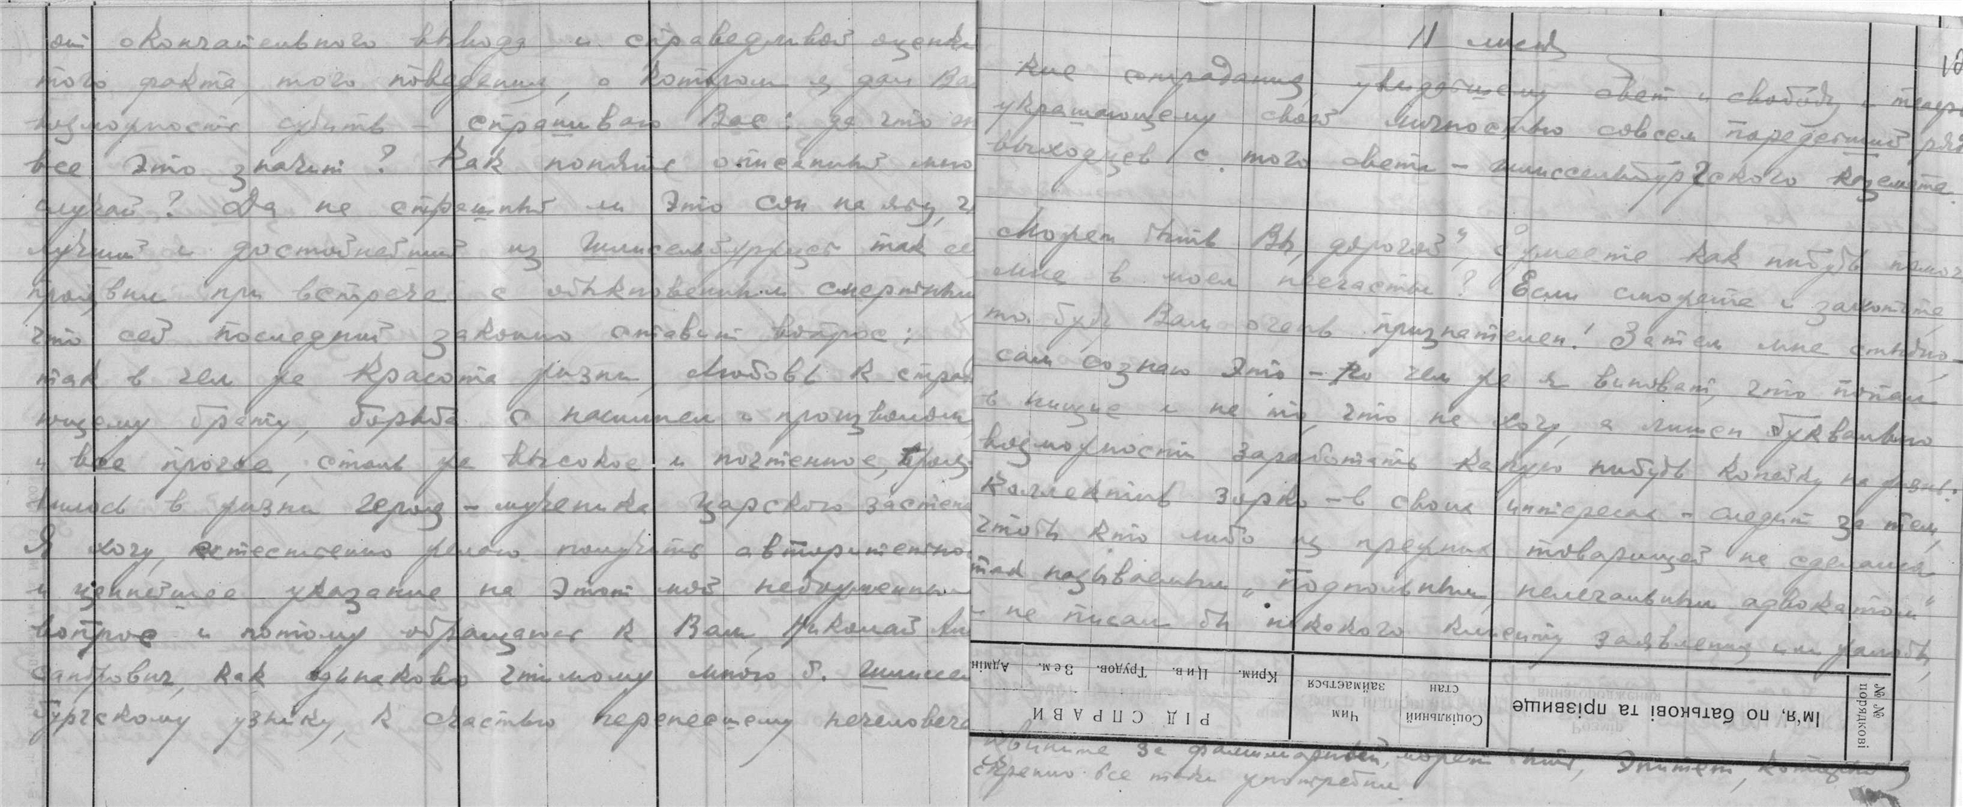 от окончательного вывода и справедливой оценки
того факта, того поведения, о котором я дал Ва
возможность судить – спрашиваю Вас: да что ж
все это значит? Как понять описанный мною
случай? Да не страшный ли это сон на яву, ч
лучший и достойнейший из Шлиссельбуржцев так се
проявил при встрече с обыкновенным смертным
что сей последний законно ставит вопрос:
так в чем же красота жизни, любовь к страж
дущему брату, борьба с насилием и произволом,
и все прочее, столь же высокое и почтенное, прояв
лялось в жизни героя – мученика царского застенка
Я хочу, естественно желаю получить авторитетное
и ценнейшее указание на этот мой недоуменный
вопрос и потому обращаюсь к Вам, Николай Але
ксандрович, как одинаково чтимому мною б. Шлиссель
бургскому узнику, к счастью перенесшему нечеловече
11 лист
ские страдания, увидевшему свет и свободу и теперь
украшающему своей личностью совсем поредевший ряд
выходцев с того света – шлиссельбургского каземата.
Может быть Вы, „дорогой", сумеете как нибудь помочь
мне в моем несчастьи? Если сможете и захотите,
то буду Вам очень признателен! Затем мне стыдно,–
сам сознаю это – но чем же я виноват, что попал
в нищие и не то, что не хочу, а лишен буквально
возможности заработать какую нибудь копейку на жизнь:
Коллектив зорко – в своих интересах – следит за тем,
чтобы кто либо из прежних товарищей не сделался
так называемым „подпольным, нелегальным адвокатом"
и не писал бы никакого клиенту заявления или жалобы,
№№ порядкові
Ім'я, по батькові та прізвище
Соціяльний стан
Чим займається
РІД СПРАВИ
Крим. Цив. Трудов. Зем. Адмін
Извините за фамильярный, может быть, эпитет, который я
искренно все таки употребил.